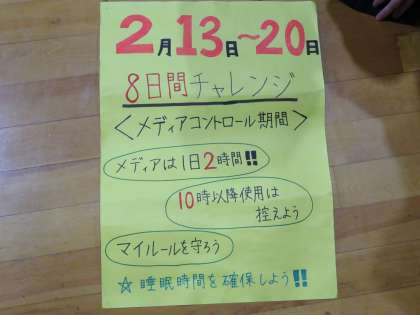 2月13日～20日
8日間チャレンジ
＜メディアコントロール期間＞
メディアは1日2時間!!
10時以降使用は
控えよう
マイルールを守ろう
☆睡眠時間を確保しよう!!